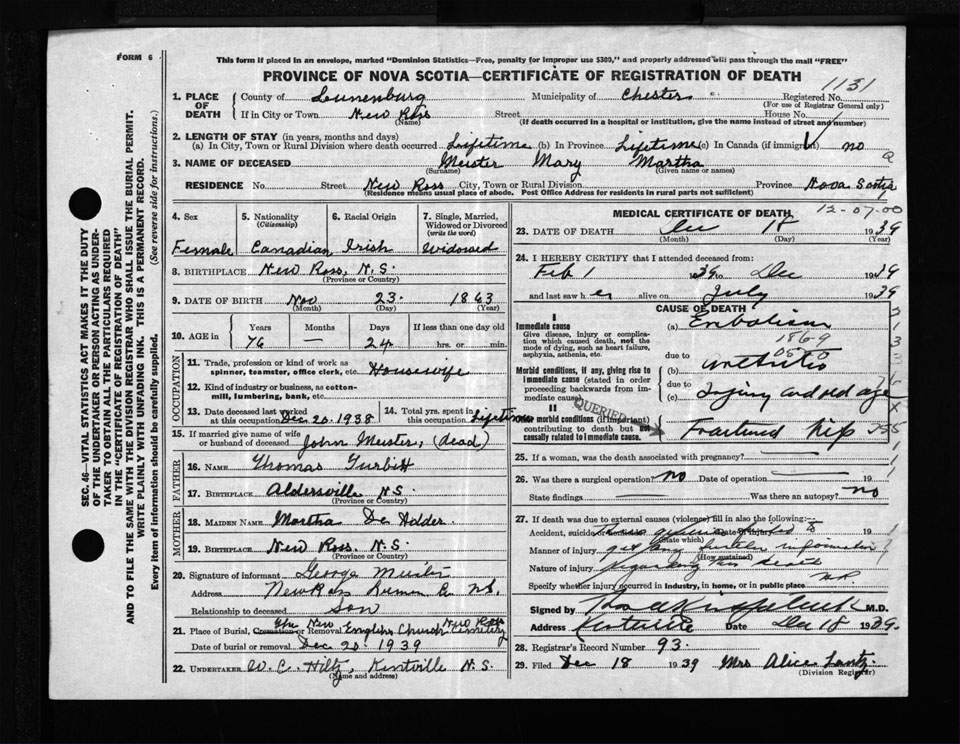 FORM 6
This form if placed in an envelope, marked "Dominion Statistics—Free, penalty for improper use $300," and properly addressed will pass through the mail "FREE"
PROVINCE OF NOVA SCOTIA—CERTIFICATE OF REGISTRATION OF DEATH
1151
1. PLACE OF DEATH County of Lunenburg Municipality of Chester Registered No.
(For use of Registrar General only)
If in City or Town New Ross Street House No.
(Name) (If death occurred in a hospital or institution, give the name instead of street and number)
2. LENGTH OF STAY (in years, months and days)
(a) In City, Town or Rural Division where death occurred Lifetime (b) In Province Lifetime (c) In Canada (if immigrant) no
3. NAME OF DECEASED Meister Mary Martha
(Surname) (Given name or names)
RESIDENCE No. Street New Ross City, Town or Rural Division Province Nova Scotia
(Residence means usual place of abode. Post Office Address for residents in rural parts not sufficient)
4. Sex 5. Nationality (Citizenship) 6. Racial Origin 7. Single, Married, Widowed or Divorced (write the word)
Female Canadian Irish Widowed
8. BIRTHPLACE New Ross, N.S.
(Province or Country)
9. DATE OF BIRTH Nov 23. 1863
(Month) (Day) (Year)
10. AGE in Years Months Days If less than one day old
76 — 24 hrs. or min.
OCCUPATION
11. Trade, profession or kind of work as spinner, teamster, office clerk, etc. Housewife
12. Kind of industry or business, as cotton-mill, lumbering, bank, etc.
13. Date deceased last worked at this occupation Dec 20. 1938 14. Total yrs. spent in this occupation Lifetime
15. If married give name of wife or husband of deceased John Meister, (dead)
FATHER
16. NAME Thomas Turbitt
17. BIRTHPLACE Aldersville N.S.
(Province or Country)
MOTHER
18. MAIDEN NAME Martha De Adder
19. BIRTHPLACE New Ross. N.S.
(Province or Country)
20. Signature of informant George Meister
Address New Ross Lunen Co. N.S.
Relationship to deceased son
21. Place of Burial, Cremation or Removal The New English Church Cemetery New Ross
Date of burial or removal Dec 20. 1939
22. UNDERTAKER W. C. Hiltz, Kentville N.S.
(Name and address)
MEDICAL CERTIFICATE OF DEATH
12-07-00
23. DATE OF DEATH Dec 18 1939
(Month) (Day) (Year)
24. I HEREBY CERTIFY that I attended deceased from:
Feb 1 1939 to Dec 1939
and last saw her alive on July 1939
CAUSE OF DEATH
I
Immediate cause
Give disease, injury or complication which caused death, not the mode of dying, such as heart failure, asphyxia, asthenia, etc.
(a) Embolism
due to
(b)
Morbid conditions, if any, giving rise to immediate cause (stated in order proceeding backwards from immediate cause)
due to
(c) Injury and old age
QUERIED
II
Other morbid conditions (if important) contributing to death but not causally related to immediate cause.
Fractured hip
25. If a woman, was the death associated with pregnancy?
26. Was there a surgical operation? no Date of operation 19
State findings Was there an autopsy? no
27. If death was due to external causes (violence) fill in also the following:—
Accident, suicide
(State which)
Manner of injury further information
(How sustained)
Nature of injury regarding this death
Specify whether injury occurred in industry, in home, or in public place
Signed by M.D.
Address Kentville Date Dec 18 1939.
28. Registrar's Record Number 93.
29. Filed Dec 18 1939 Mrs Alice Lantz.
(Division Registrar)
SEC. 46—VITAL STATISTICS ACT MAKES IT THE DUTY
OF THE UNDERTAKER OR PERSON ACTING AS UNDER-
TAKER TO OBTAIN ALL THE PARTICULARS REQUIRED
IN THE "CERTIFICATE OF REGISTRATION OF DEATH"
AND TO FILE THE SAME WITH THE DIVISION REGISTRAR WHO SHALL ISSUE THE BURIAL PERMIT.
WRITE PLAINLY WITH UNFADING INK. THIS IS A PERMANENT RECORD.
Every item of information should be carefully supplied. (See reverse side for instructions.)